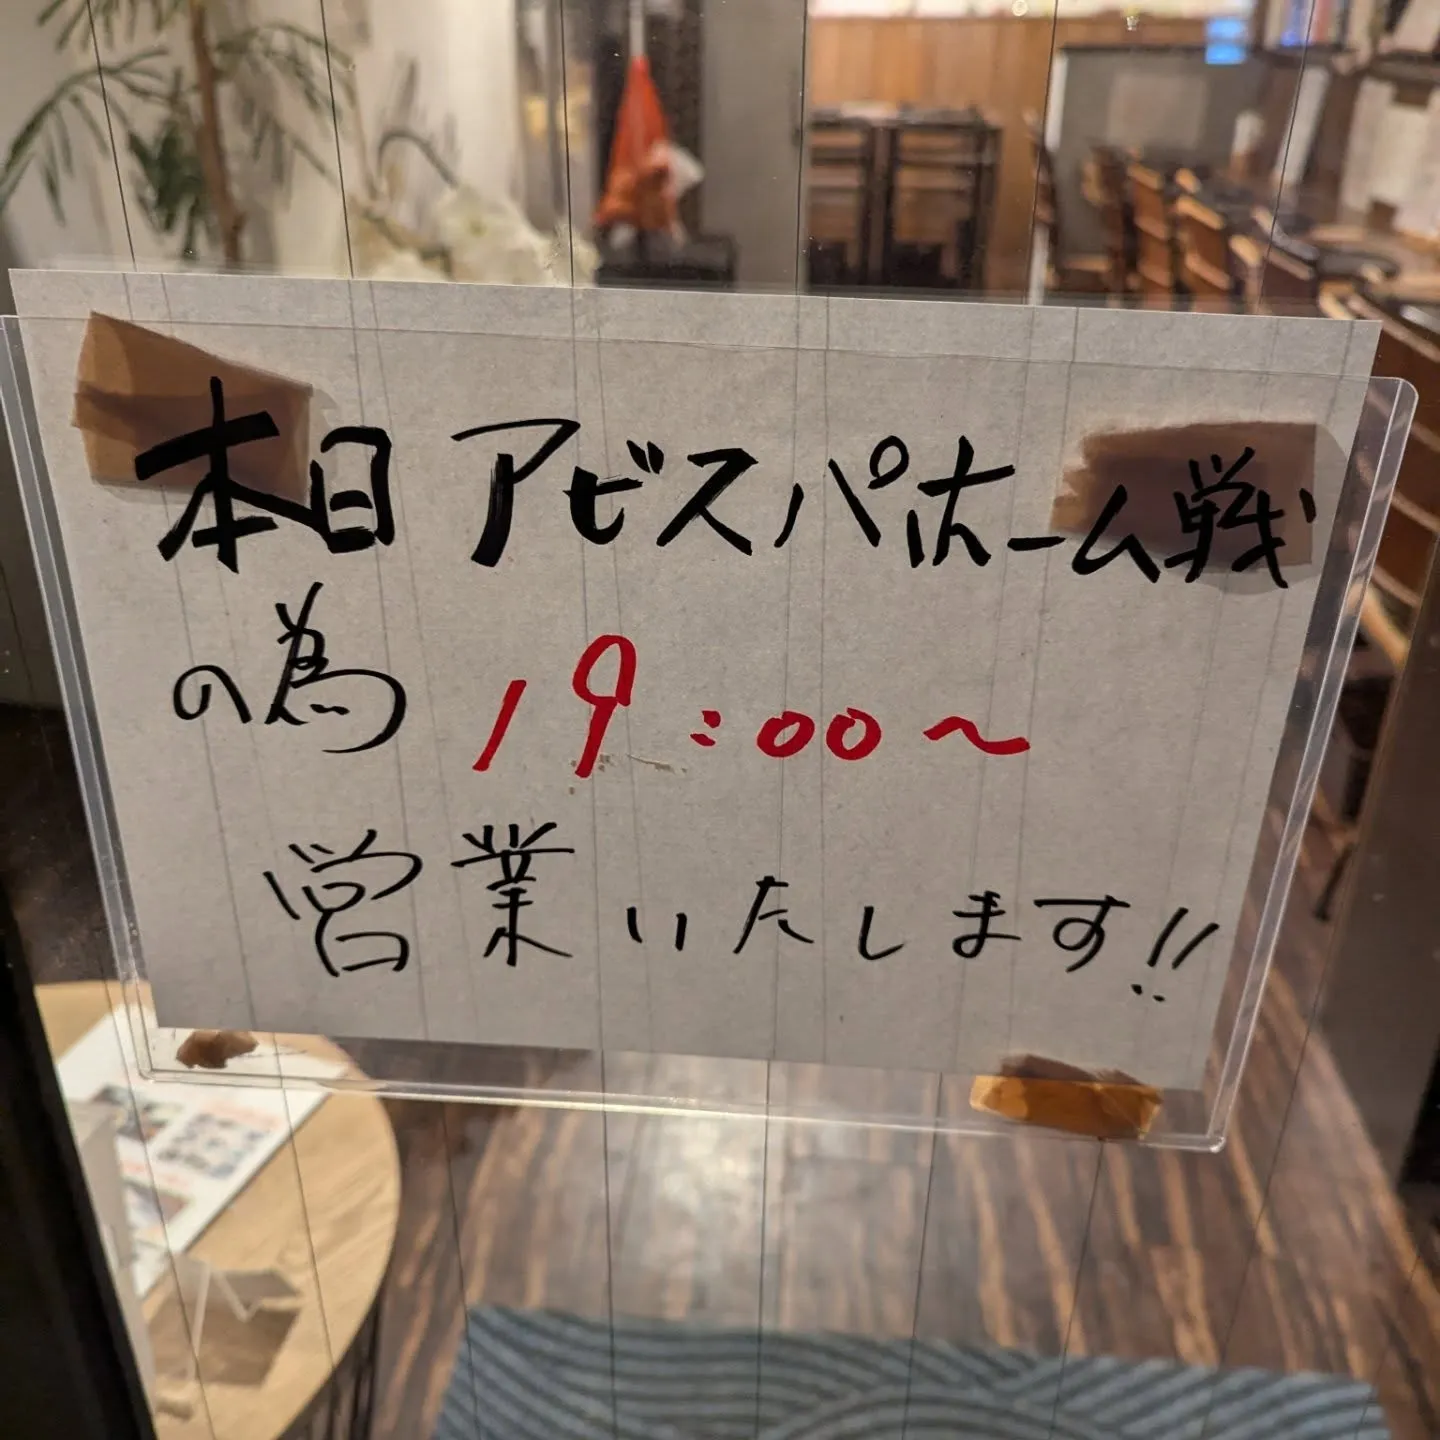 本日アビスパホーム戦
の為 19:00～
営業いたします!!